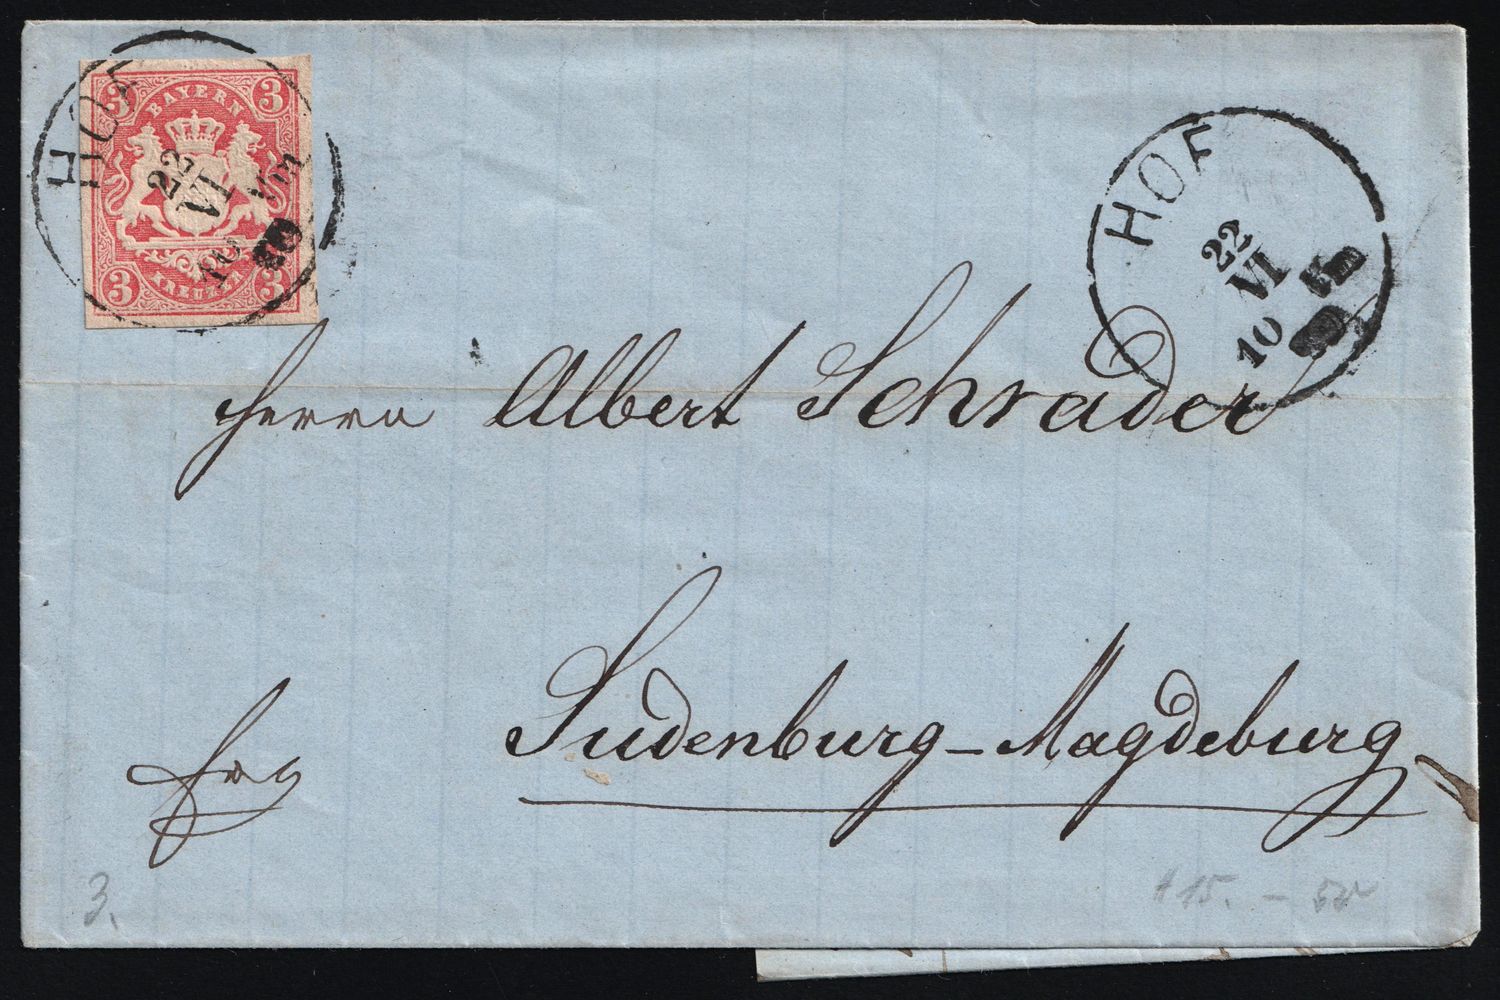 3 3
BAYERN
KREUZER
3 3
HOF
22
VI
10 Vm
HOF
22
VI
10
Herrn Albert Schrader
Sudenburg-Magdeburg
3.
15. –